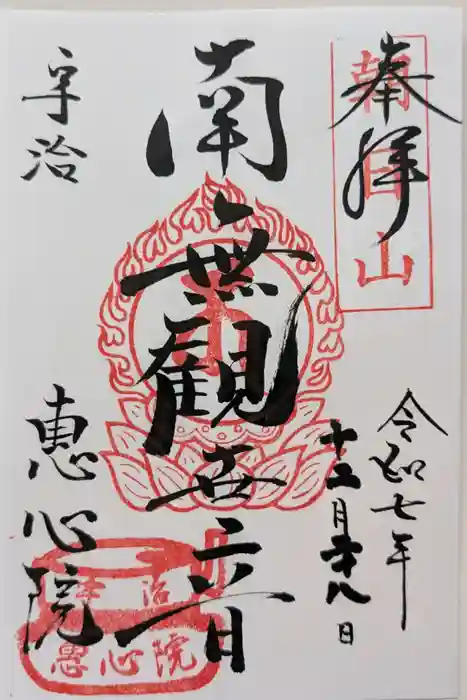 奉拝
朝日山
南無觀世音
令和七年
十二月廿八日
宇治
惠心院
宇治
恵心院